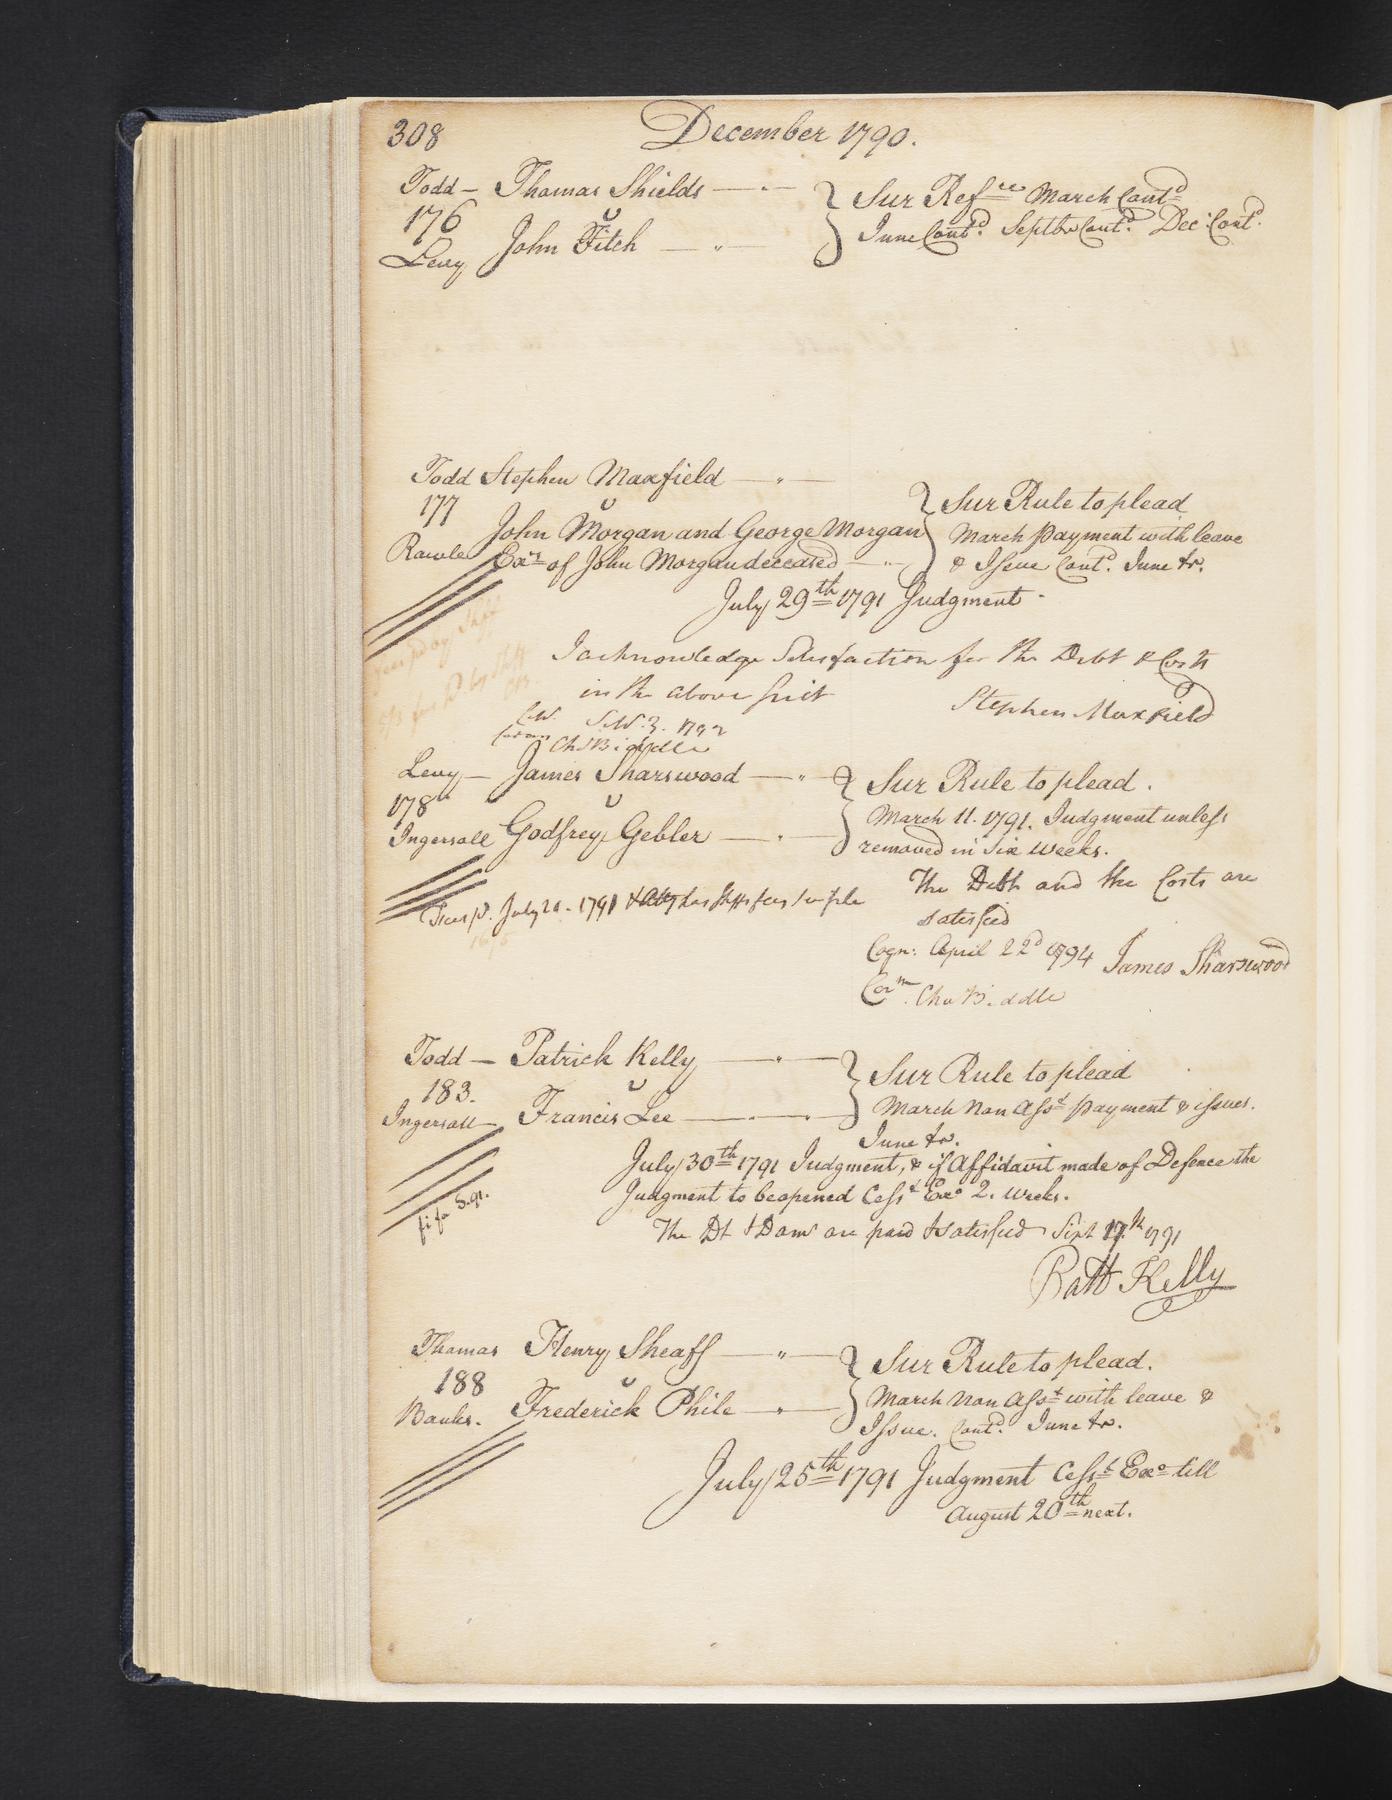 308 December 1790.
Todd — Thomas Shields — " — Sur Ref.ce March Cont.d
176 v
Levy John Fitch — " — June Cont.d Septbr Cont.d Dec.r Cont.d
Todd Stephen Maxfield — " —
177 v Sur Rule to plead
Rawle John Morgan and George Morgan March payment with leave
Exrs of John Morgan deceased — " — & Issue Cont.d June tr.
July 29th 1791 Judgment -
I acknowledge Satisfaction for the Debt & Costs
in the above Suit Stephen Maxfield
Levy — James Sharswood — " — Sur Rule to plead.
178 v March 11. 1791. Judgment unless
Ingersoll Godfrey Gebler — " — removed in Six Weeks.
The Debt and the Costs are
July 20. 1791
satisfied
Cogn: April 22d 1794 James Sharswood
Cor.m Chas Biddle
Todd — Patrick Kelly — " — Sur Rule to plead
183. v
Ingersoll — Francis Lee — " — March Non Asst payment & issues.
June tr.
July 30th 1791 Judgment, & if Affidavit made of Defence the
Judgment to be opened Cesst Exo 2. weeks.
fi fa S. 91.
The Dt & Dam are paid & satisfied Sept 17th 1791
Patt Kelly
Thomas Henry Sheaff — " — Sur Rule to plead.
188 v March Non Asst with leave &
Banks. Frederick Phile — " — Issue. Cont.d June tr.
July 25th 1791 Judgment Cesst Exo till
August 20th next.